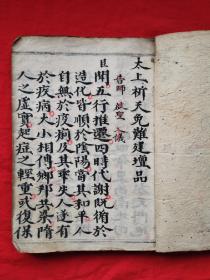 太上祈天免難建壇品
告師 啟聖 入儀
且聞五行推遷四時代謝既侑於
造化皆順於陰陽當其和平人
自無於疫痢及其乖失人遂有
於疾病大小相傳鄉邦共染隋
人之虛實起症之輕重或復保